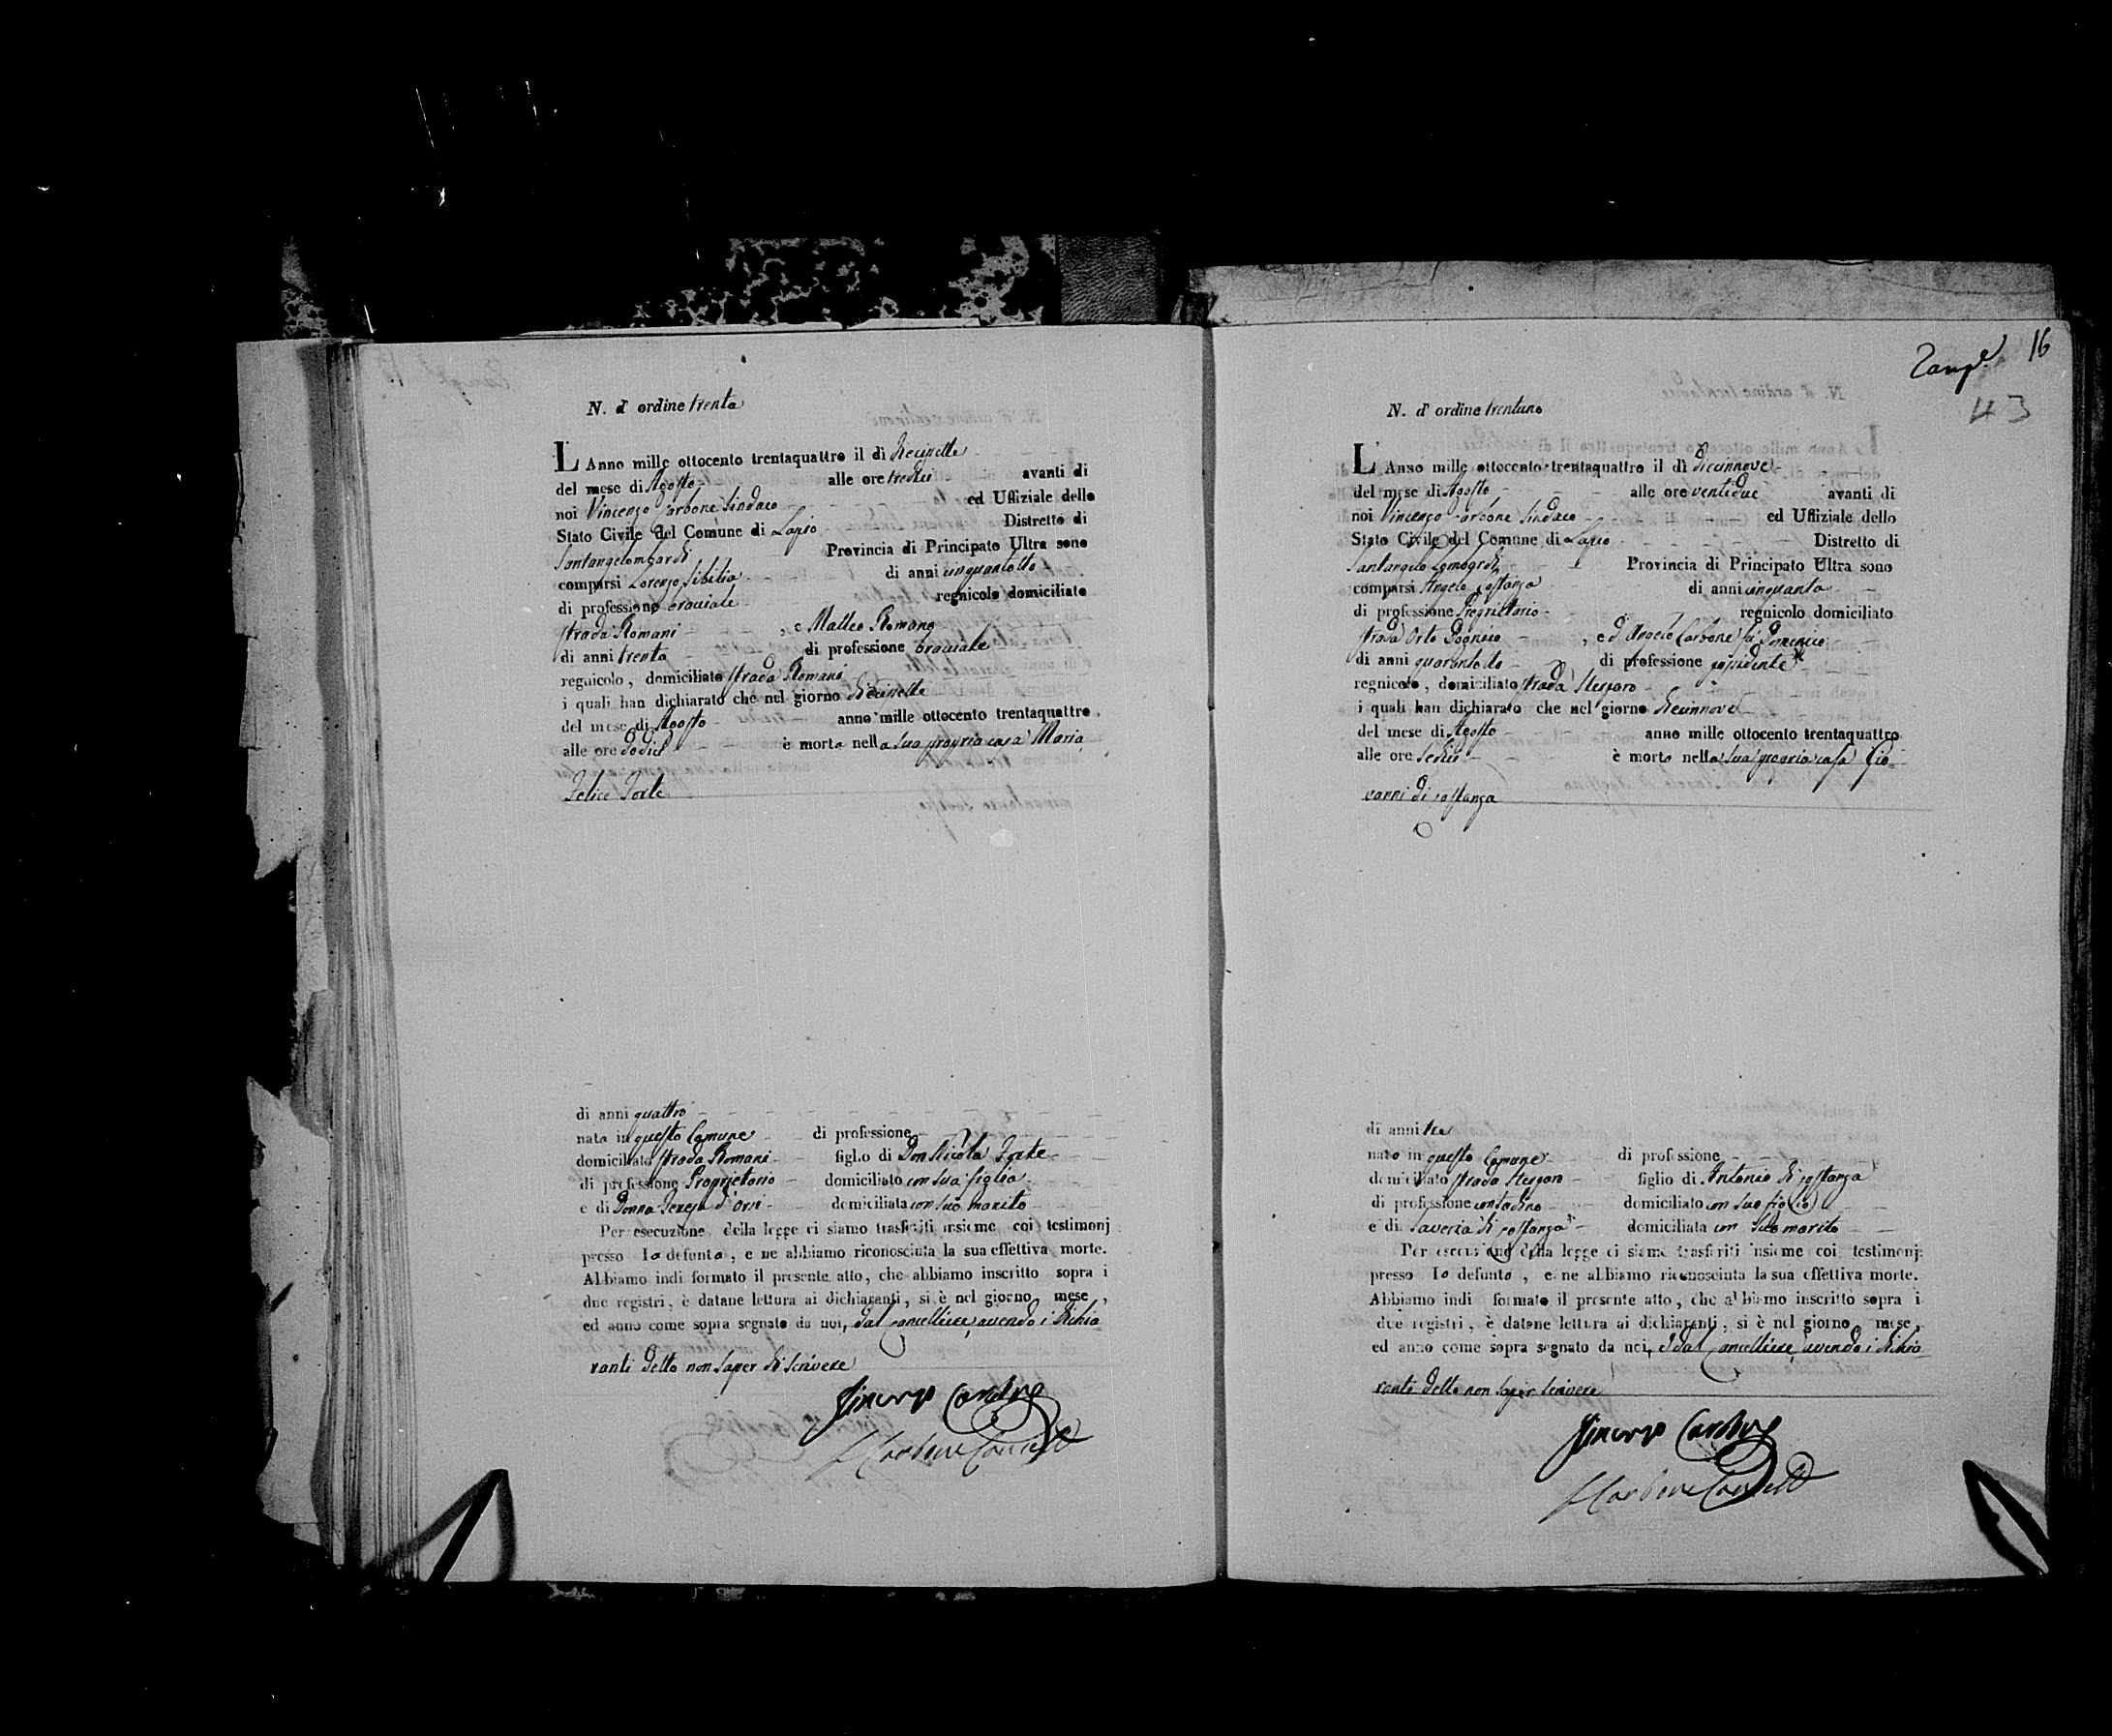 N. d' ordine trenta
L'Anno mille ottocento trentaquattro il dì diecisette
del mese di Agosto alle ore tredici avanti di
noi Vincenzo Carbone Sindaco ed Uffiziale dello
Stato Civile del Comune di Lapio Distretto di
Santangelombardi Provincia di Principato Ultra sono
comparsi Lorenzo Sibilia di anni cinquantotto
di professione bracciale regnicolo domiciliato
strada Romani , e Matteo Romano
di anni trenta di professione bracciale
regnicolo, domiciliato strada Romani
i quali han dichiarato che nel giorno diecisette
del mese di Agosto anno mille ottocento trentaquattro
alle ore dodici è morta nella sua propria casa Maria
Felice Forte
di anni quattro
nata in questo Comune di professione
domiciliata strada Romani figlia di Don Nicola Forte
di professione Proprietario domiciliato con sua figlia
e di Donna Teresa d'Orsi domiciliata con suo marito
Per esecuzione della legge ci siamo trasferiti insieme coi testimonj
presso la defunta, e ne abbiamo riconosciuta la sua effettiva morte.
Abbiamo indi formato il presente atto, che abbiamo inscritto sopra i
due registri, è datane lettura ai dichiaranti, si è nel giorno, mese,
ed anno come sopra segnato da noi, dal Cancelliere, avendo i dichia
ranti detto non saper di scrivere
Vincenzo Carbone
Carbone Cancell
16
43
N. d' ordine trentuno
L'Anno mille ottocento trentaquattro il dì diecinnove
del mese di Agosto alle ore ventidue avanti di
noi Vincenzo Carbone Sindaco ed Uffiziale dello
Stato Civile del Comune di Lapio Distretto di
Santangelo Lombardi Provincia di Principato Ultra sono
comparsi Angelo Costanza di anni cinquanta
di professione Proprietario regnicolo domiciliato
strada Orto , e d Angelo Carbone fu Domenico
di anni quarantotto di professione possidente
regnicolo, domiciliato strada
i quali han dichiarato che nel giorno diecinnove
del mese di Agosto anno mille ottocento trentaquattro
alle ore sedici è morto nella sua propria casa Gio
vanni di Costanza
di anni tre
nato in questo Comune di professione
domiciliato strada figlio di Antonio di Costanza
di professione contadino domiciliato con suo figlio
e di Saveria di Costanza domiciliata con suo marito
Per esecuzione della legge ci siamo trasferiti insieme coi testimonj
presso lo defunto, e ne abbiamo riconosciuta la sua effettiva morte.
Abbiamo indi formato il presente atto, che abbiamo inscritto sopra i
due registri, è datane lettura ai dichiaranti, si è nel giorno, mese,
ed anno come sopra segnato da noi, e dal Cancelliere, avendo i dichia
ranti detto non saper scrivere
Vincenzo Carbone
Carbone Cancell